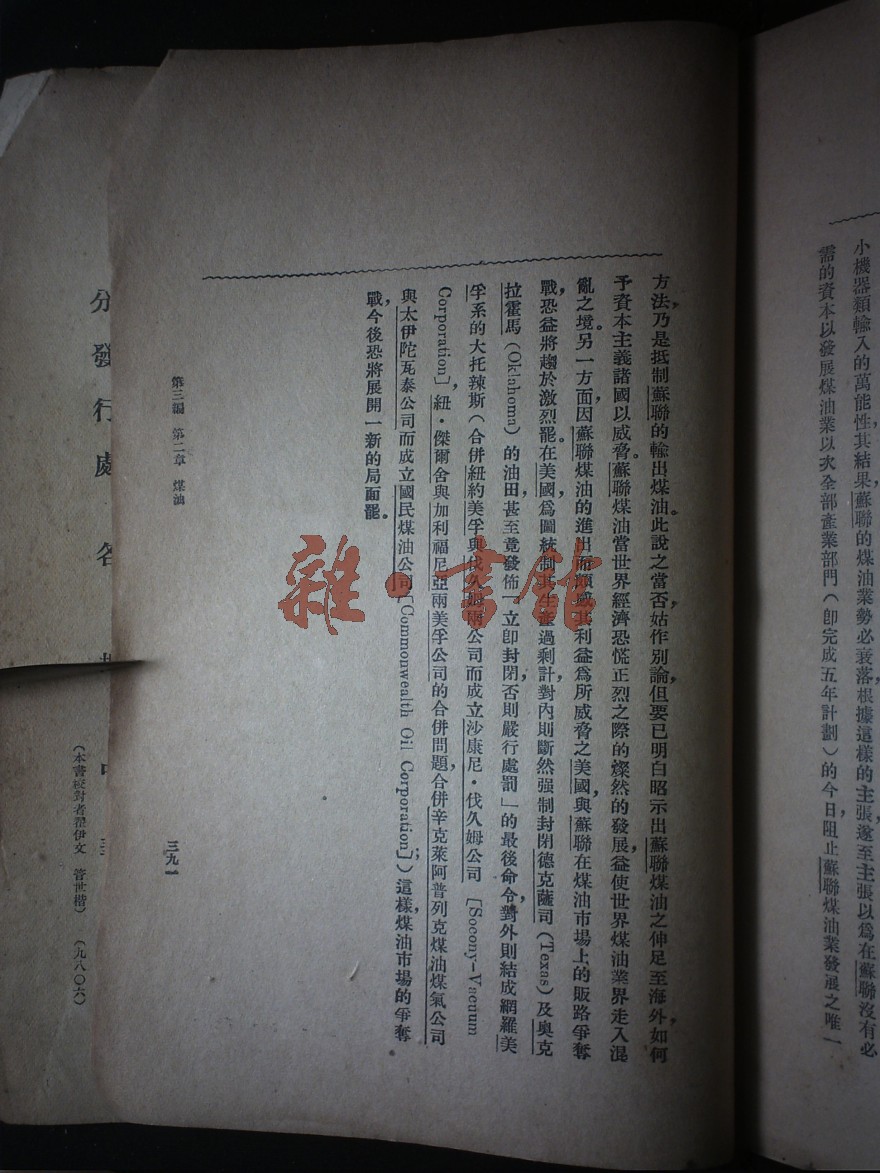 小機器類輸入的萬能性，其結果，蘇聯的煤油業勢必衰落。根據這樣的主張，遂至主張以爲在蘇聯沒有必
需的資本以發展煤油業以次全部產業部門（卽完成五年計劃）的今日，阻止蘇聯煤油業發展之唯一
方法，乃是抵制蘇聯的輸出煤油。此說之當否，姑作別論，但要已明白昭示出蘇聯煤油之伸足至海外，如何
予資本主義諸國以威脅。蘇聯煤油當世界經濟恐慌正烈之際的燦然的發展，益使世界煤油業界走入混
亂之境。另一方面，因蘇聯煤油的進出而頗感其利益爲所威脅之美國，與蘇聯在煤油市場上的販路爭奪
戰，恐益將趨於激烈罷。在美國，爲圖統制其生產過剩計，對內則斷然强制封閉德克薩司（Texas）及奧克
拉霍馬（Oklahoma）的油田，甚至竟發佈「立卽封閉，否則嚴行處罰」的最後命令，對外則結成網羅美
孚系的大托辣斯（合併紐約美孚與伐久姆兩公司而成立沙康尼·伐久姆公司〔Socony-Vacuum
Corporation〕，紐·傑爾舍與加利福尼亞兩美孚公司的合併問題，合併辛克萊阿普列克煤油煤氣公司
與太伊陀瓦泰公司而成立國民煤油公司〔Commonwealth Oil Corporation〕；）這樣，煤油市場的爭奪
戰，今後恐將展開一新的局面罷。
第三編 第二章 煤油
三九一
分發行處 各
（本書校對者翟伊文 管世楷）（九八〇六）
雜·書館